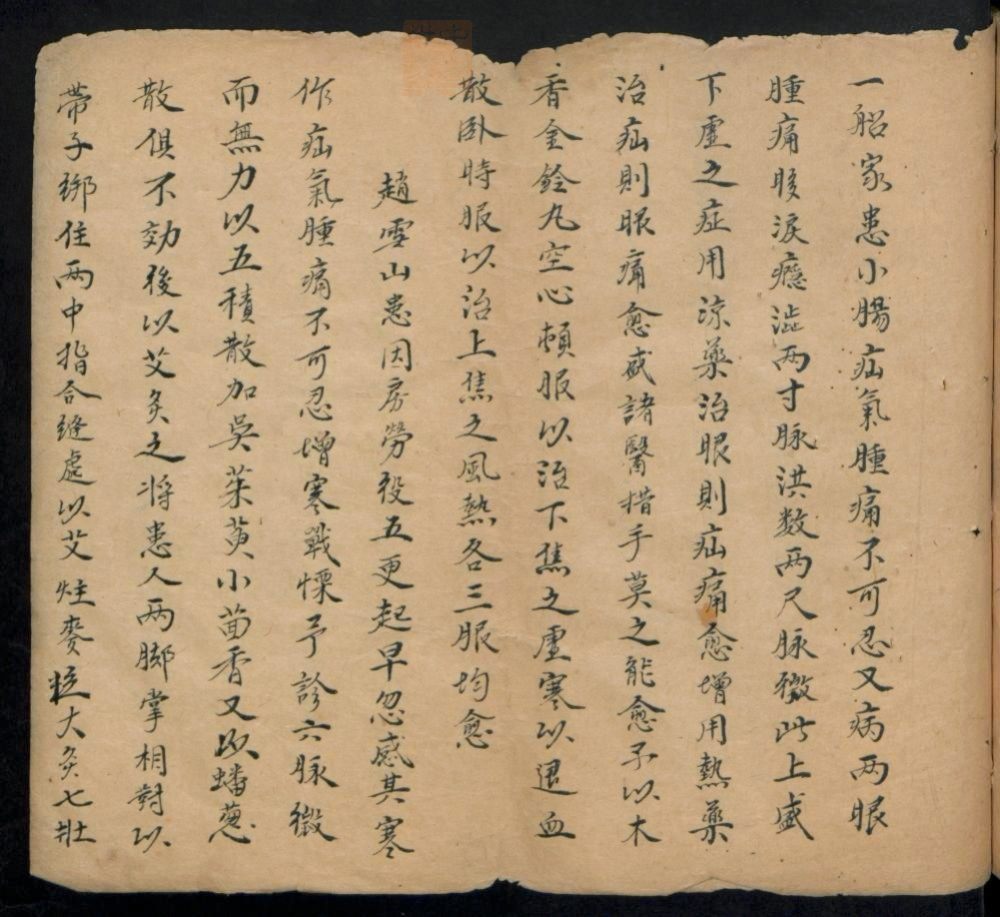 一船家患小腸疝氣腫痛不可忍又病两眼
腫痛眵淚癮澁两寸脉洪数两尺脉微此上盛
下虚之症用涼藥治眼則疝痛愈增用熱藥
治疝則眼痛愈盛諸醫措手莫之能愈予以木
香金鈴丸空心頓服以治下焦之虚寒以退血
散卧時服以治上焦之風熱各三服均愈
趙雪山患因房勞役五更起早忽感其寒
作疝氣腫痛不可忍增寒戰慄予診六脉微
而無力以五積散加吳茱萸小茴香又以蟠葱
散俱不効後以艾灸之将患人两脚掌相對以
帶子綁住两中指合縫處以艾炷麥粒大灸七壯